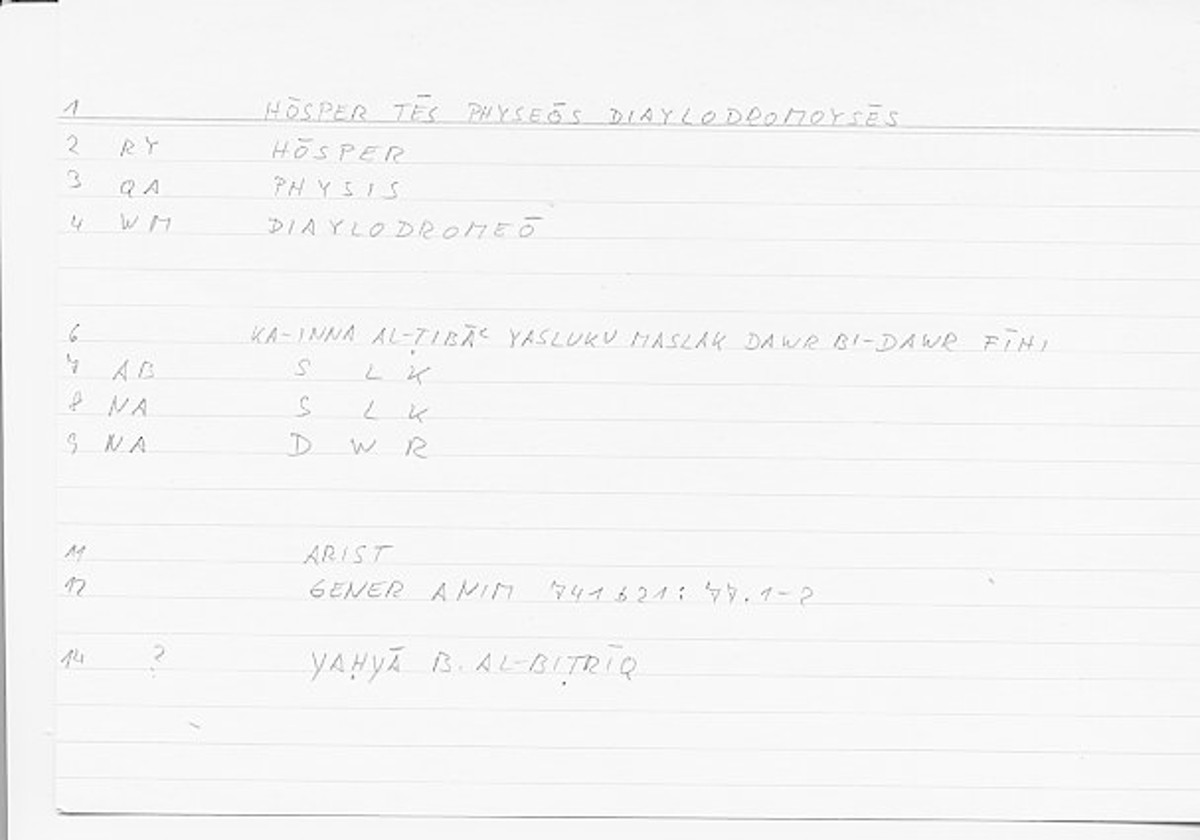 1 HŌSPER TĒS PHYSEŌS DIAYLODROMOYSĒS
2 RY HŌSPER
3 QA PHYSIS
4 WM DIAYLODROMEŌ
6 KA-INNA AL-ṬIBĀʿ YASLUKU MASLAK DAWR BI-DAWR FĪHI
7 AB S L K
8 NA S L K
9 NA D W R
11 ARIST
12 GENER ANIM 741b21: 77.1-2
14 ? YAḤYĀ B. AL-BIṬRĪQ